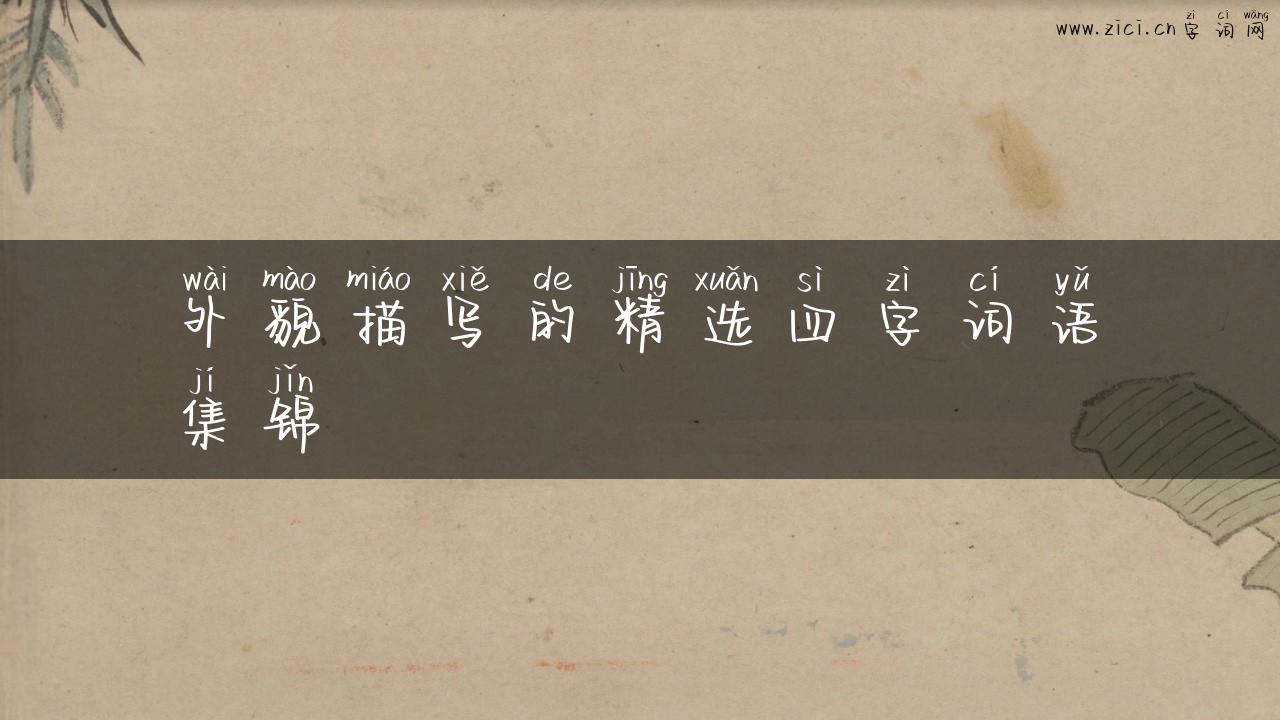 zì cí wǎng
www.zici.cn 字词网
wài mào miáo xiě de jīng xuǎn sì zì cí yǔ
外貌描写的精选四字词语
jí jǐn
集锦